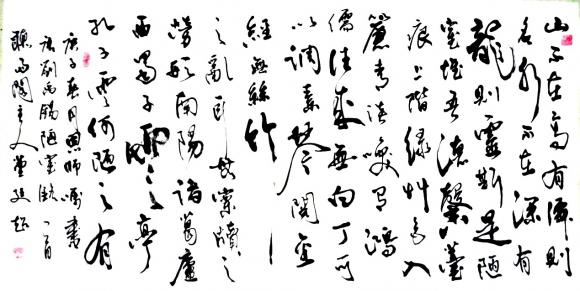 山不在高有僊則
名水不在深有
龍則靈斯是陋
室惟吾德馨苔
痕上階綠草色入
簾青談笑有鴻
儒往來無白丁可
以調素琴閱金
經無絲竹
之亂耳無案牘之
勞形南陽諸葛廬
西蜀子雲之亭
孔子雲何陋之有
庚子春月惠師囑書
唐劉禹錫陋室銘一首
聽雨閣主人董延